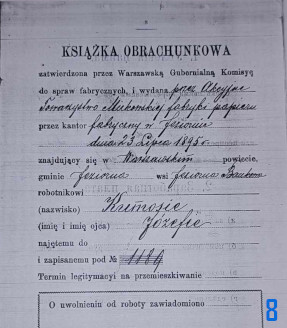 KSIĄŻKA OBRACHUNKOWA
zatwierdzona przez Warszawską Gubernialną Komisyę
do spraw fabrycznych, i wydana przez Akcyjne
Towarzystwo Mirkowskiej fabryki papieru
przez kantor fabryczny w Jeziornie
dnia 23 Lipca 1895 r.
znajdujący się w Warszawskim powiecie,
gminie Jeziorna wsi Jeziorna
robotnikowi
(nazwisko)
(imię i imię ojca) Józefie
najętemu do
i zapisanemu pod № 1189
Termin legitymacyi na przemieszkiwanie
O uwolnieniu od roboty zawiadomiono
8